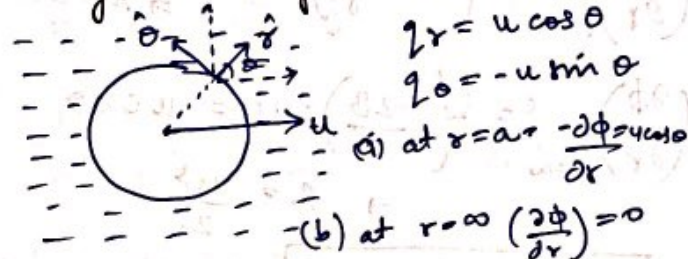 θ̂ r̂
q_r = u cos θ
θ
q_θ = -u sin θ
u
(a) at r=a - -∂ϕ/∂r = u cos θ
(b) at r=∞ (∂ϕ/∂r) = 0